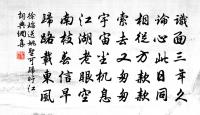 識面三年久
論心此日同
相從方款款
索去又匆匆
宇宙机息
江湖老眼空
南枝春信早
歸路載東風
徐瑞送姚聖可歸盱江
詞典網集